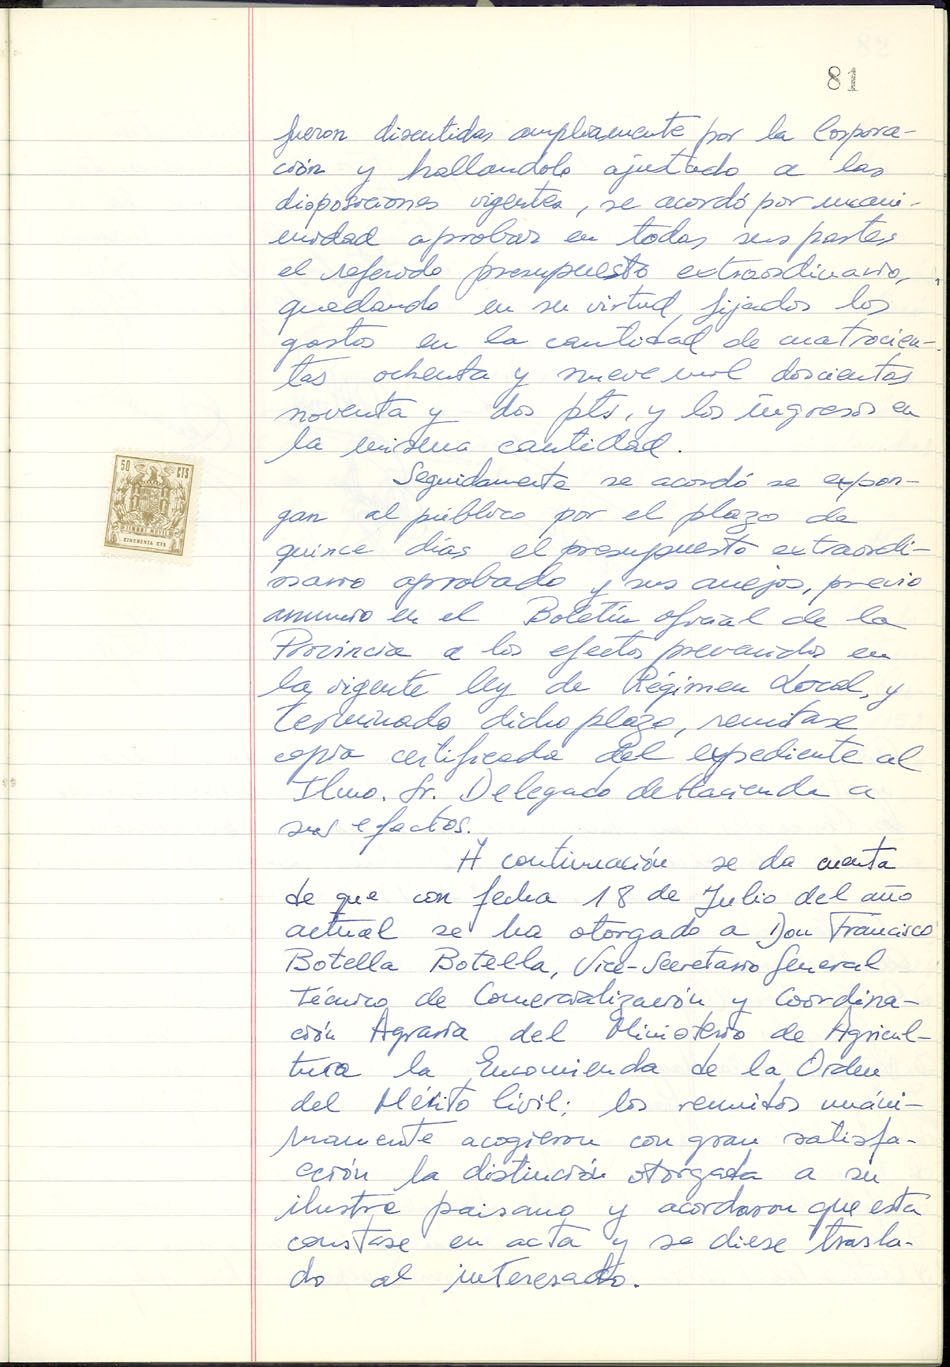 81
fueron discutidas ampliamente por la Corpora-
ción y hallandolo ajustado a las
disposiciones vigentes, se acordó por unani-
midad aprobar en todas sus partes
el referido presupuesto extraordinario,
quedando en su virtud fijados los
gastos en la cantidad de cuatrocien-
tas ochenta y nueve mil doscientas
noventa y dos pts, y los ingresos en
la misma cantidad.
Seguidamente se acordó se expon-
gan al público por el plazo de
quince días el presupuesto extraordi-
nario aprobado y sus anejos, previo
anuncio en el Boletín oficial de la
Provincia a los efectos prevenidos en
la vigente ley de Régimen Local, y
terminado dicho plazo, remitase
copia certificada del expediente al
Ilmo. Sr. Delegado de Hacienda a
sus efectos.
A continuación se da cuenta
de que con fecha 18 de Julio del año
actual se ha otorgado a Don Francisco
Botella Botella, Vice-Secretario General
Técnico de Comercialización y Coordina-
ción Agraria del Ministerio de Agricul-
tura la Encomienda de la Orden
del Mérito Civil; los reunidos unáni-
mamente acogieron con gran satisfa-
cción la distinción otorgada a su
ilustre paisano y acordaron que esta
constase en acta y se diese trasla-
do al interesado.
50 CTS
CINCUENTA CTS